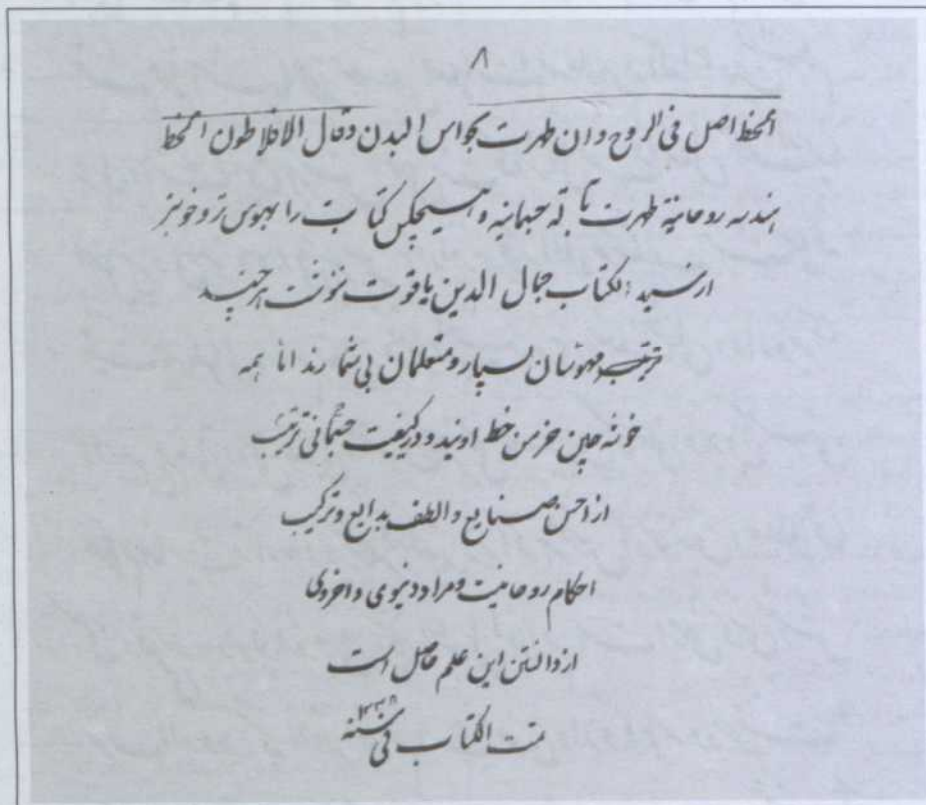 ۸
الخط اصل فی الروح و ان ظهرت بحواس البدن وقال الافلاطون الخط
هندسه روحانیة ظهرت بآلة جسمانیه و هیچکس کتابت را
الکتاب جمال الدین یاقوت ننوشت هر چند
مهوسان بسیار و متعلمان بی شمارند اما همه
خوشه چین خرمن خط اویند و در کیفیت جسمانی ترتیب
از احسن صنایع و الطف بدایع و ترکیب
احکام روحانیت و مراد دنیوی و اخروی
از دانستن این علم حاصل است
تمت الکتاب فی سنه ۱۳۳۸